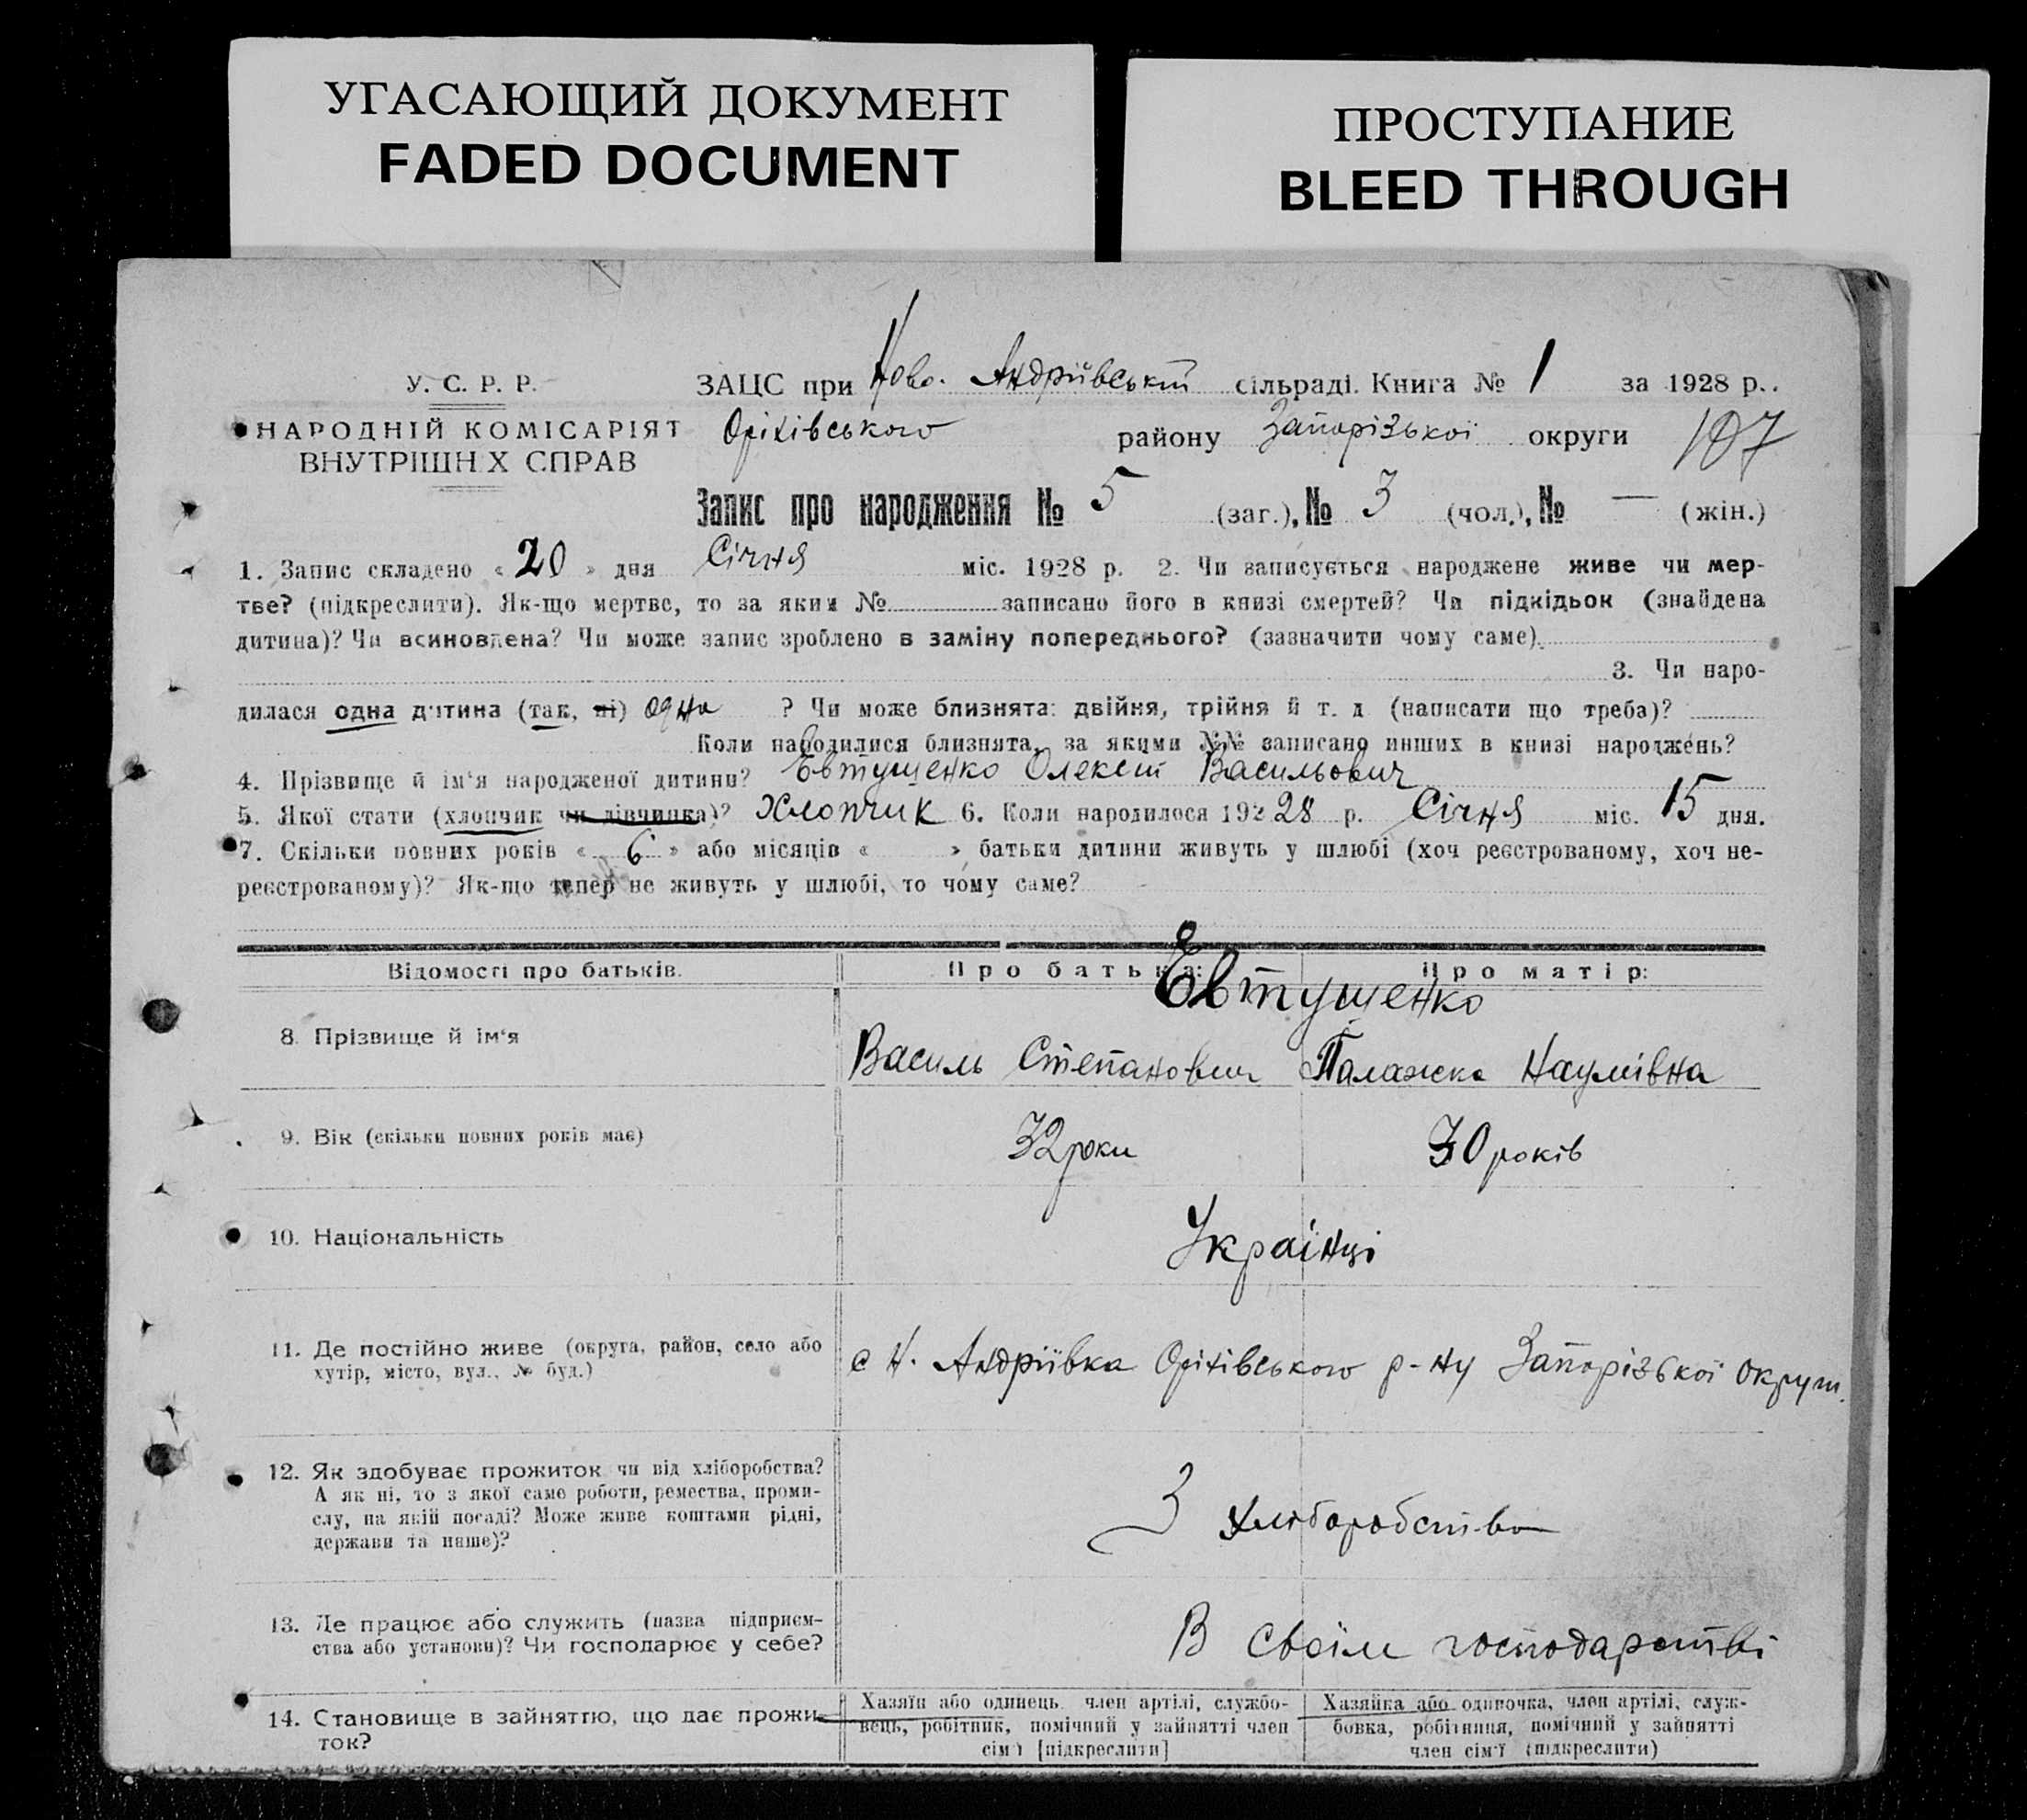 УГАСАЮЩИЙ ДОКУМЕНТ
FADED DOCUMENT
ПРОСТУПАНИЕ
BLEED THROUGH
У. С. Р. Р.
НАРОДНІЙ КОМІСАРІЯТ
ВНУТРІШН Х СПРАВ
ЗАЦС при Ново. Андріївській сільраді. Книга № 1 за 1928 р.
Оріхівського району Запорізької округи 107
Запис про народження № 5 (заг.), № 3 (чол.), № — (жін.)
1. Запис складено « 20 » дня Січня міс. 1928 р. 2. Чи записується народжене живе чи мер-
тве? (підкреслити). Як-що мертве, то за яким № записано його в книзі смертей? Чи підкідьок (знайдена
дитина)? Чи всиновлена? Чи може запис зроблено в заміну попереднього? (зазначити чому саме)
3. Чи наро-
дилася одна дитина (так, ні) одна ? Чи може близнята: двійня, трійня й т. д (написати що треба)?
Коли народилися близнята, за якими №№ записано инших в книзі народжень?
4. Прізвище й ім'я народженої дитини? Евтушенко Олексій Васильович
5. Якої стати (хлопчик чи дівчинка)? Хлопчик 6. Коли народилося 192 28 р. Січня міс. 15 дня.
7. Скільки повних років « 6 » або місяців « » батьки дитини живуть у шлюбі (хоч реєстрованому, хоч не-
реєстрованому)? Як-що тепер не живуть у шлюбі, то чому саме?
Відомості про батьків. Про батька: Про матір:
Евтушенко
8. Прізвище й ім'я Василь Степанович Палажка Наумівна
9. Вік (скільки повних років має) 32 роки 30 років
10. Національність Українці
11. Де постійно живе (округа, район, село або
хутір, місто, вул., № буд.)
с Н. Андріївка Оріхівського р-ну Запорізької округи.
12. Як здобуває прожиток чи від хліборобства?
А як ні, то з якої саме роботи, ремества, проми-
слу, на якій посаді? Може живе коштами рідні,
держави та инше)?
З хліборобства
13. Де працює або служить (назва підприєм-
ства або установи)? Чи господарює у себе?
В своїм господарстві
14. Становище в зайняттю, що дає прожи-
ток?
Хазяїн або одинець, член артілі, службо-
вець, робітник, помічний у зайнятті член
сім'ї [підкреслити]
Хазяйка або одиночка, член артілі, служ-
бовка, робітниця, помічний у зайнятті
член сім'ї (підкреслити)